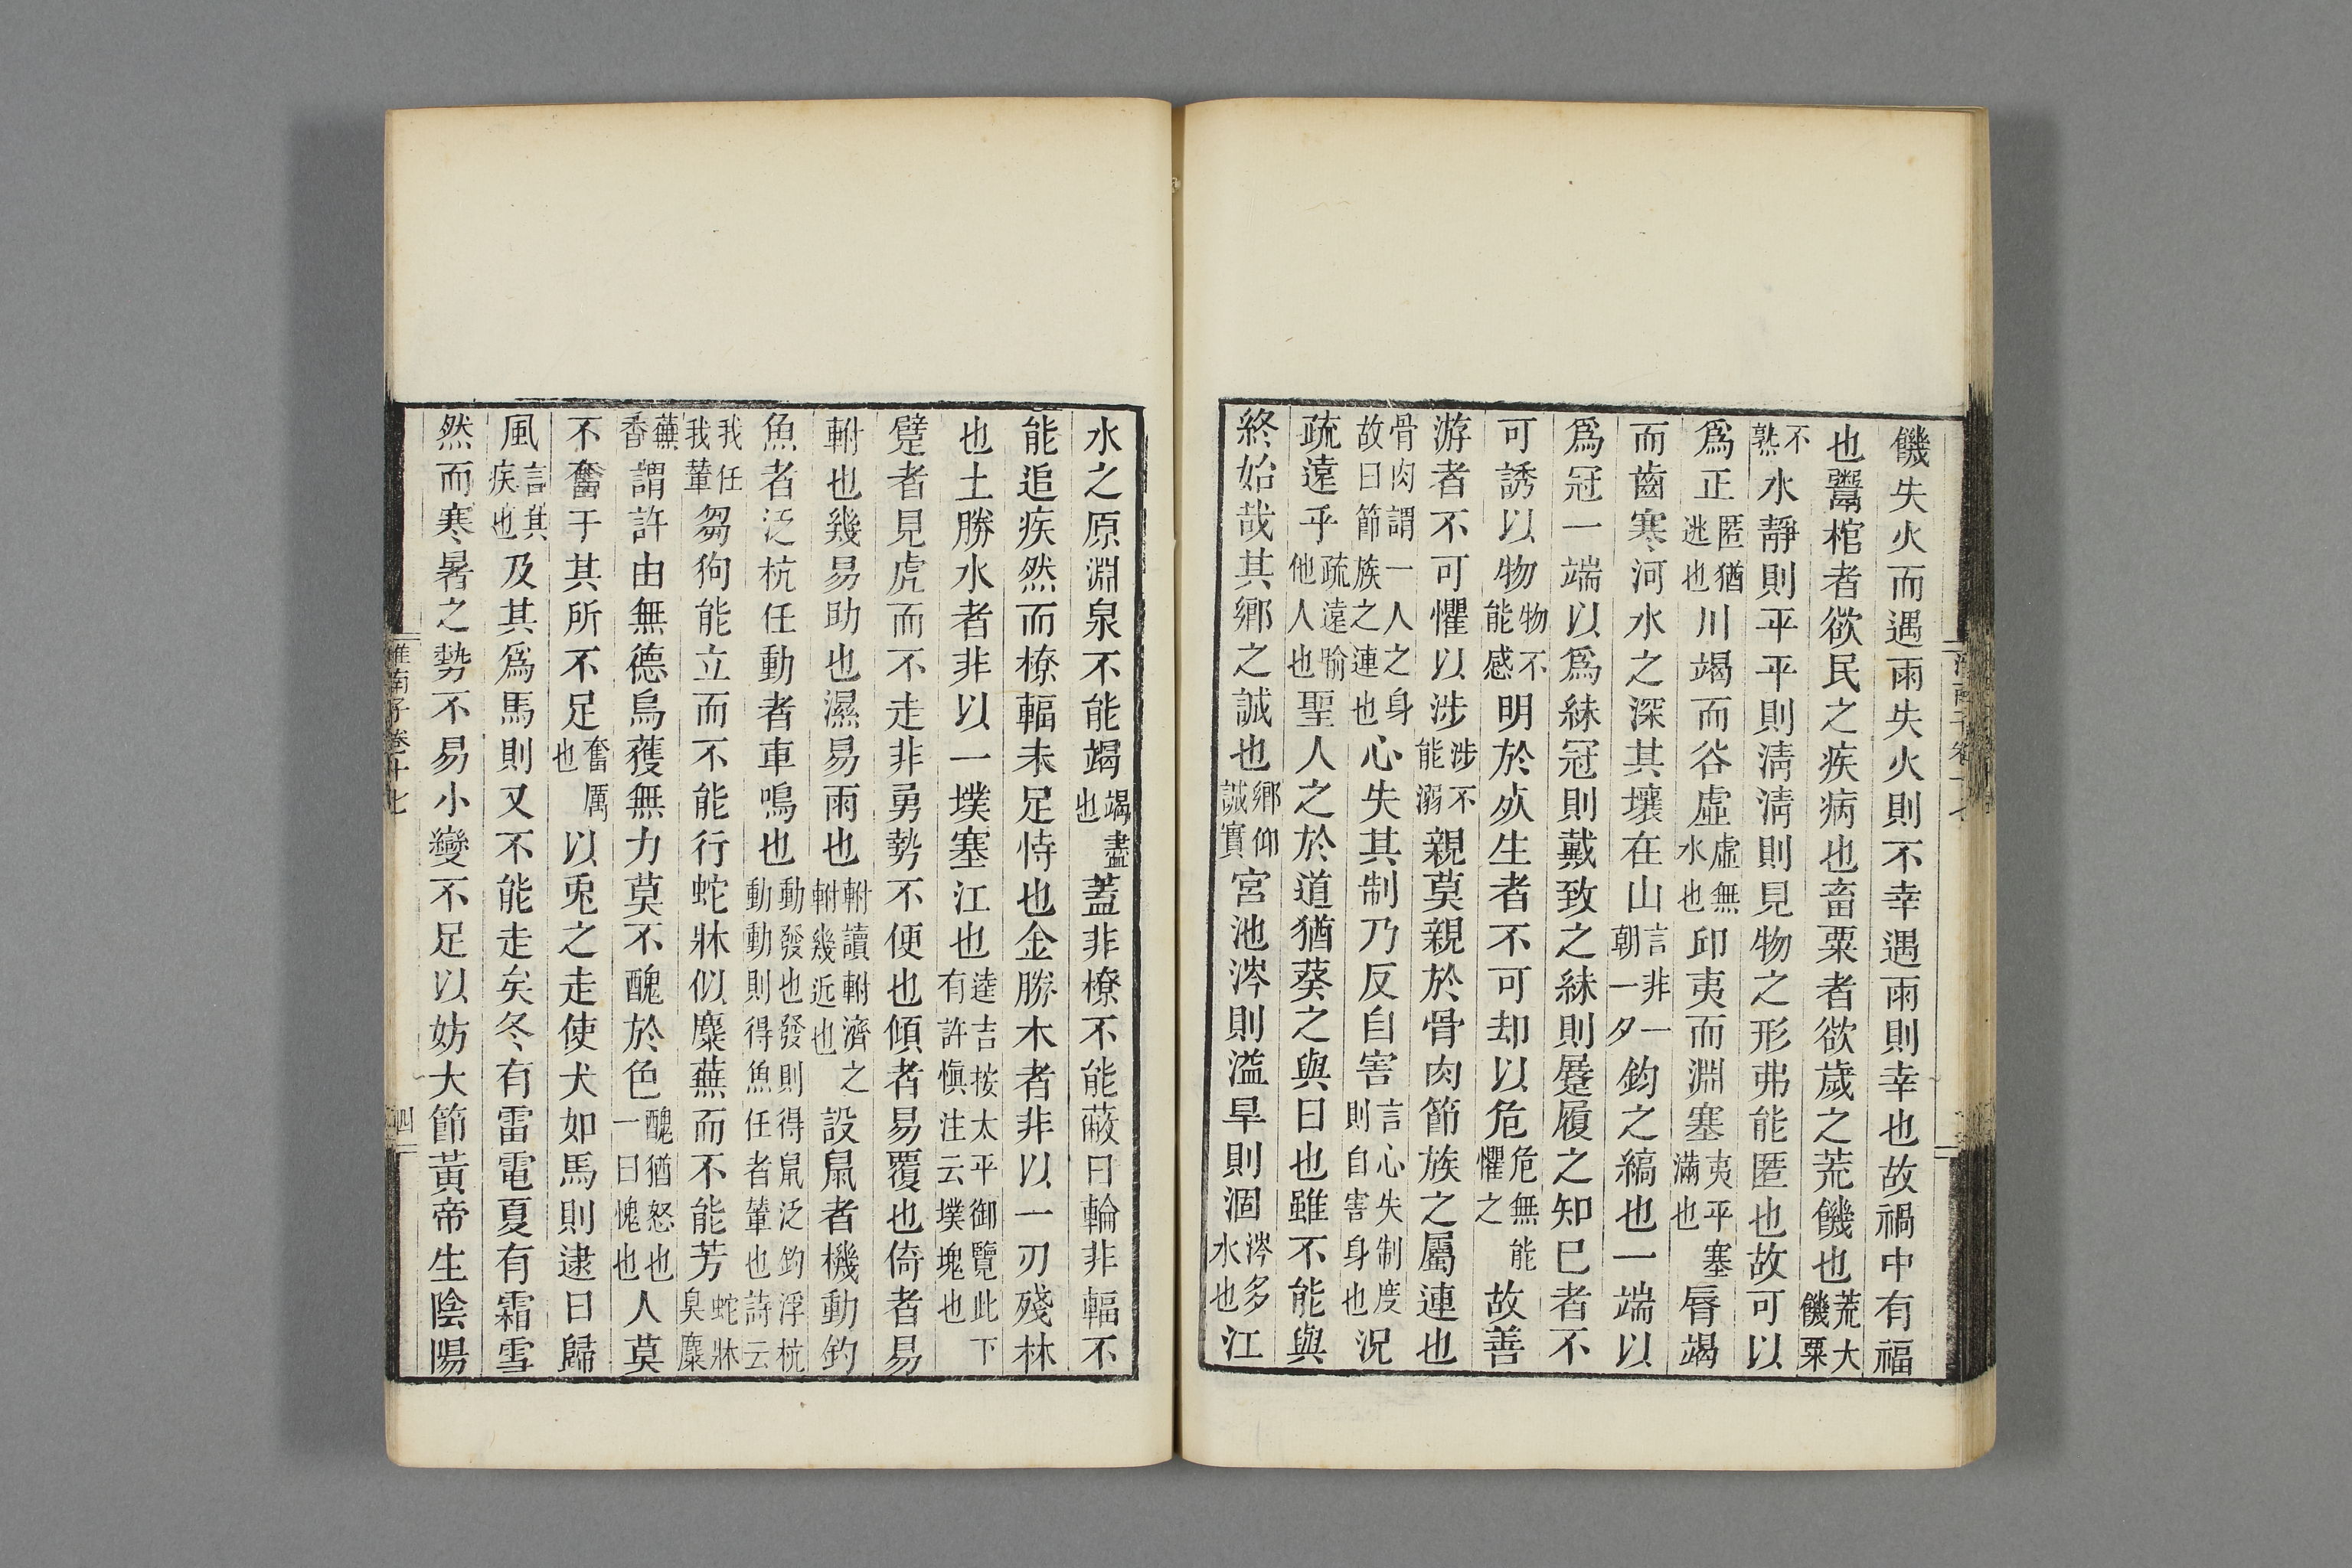 饑失火而遇雨失火則不幸遇雨則幸也故禍中有福
也鬻棺者欲民之疾病也畜粟者欲歲之荒饑也荒大饑粟
不熟水靜則平平則淸淸則見物之形弗能匿也故可以
爲正匿猶逃也川竭而谷虛虛無水也邱夷而淵塞夷平塞滿也脣竭
而齒寒河水之深其壤在山言非一朝一夕鈞之縞也一端以
爲冠一端以爲絑冠則戴致之絑則㞡履之知已者不
可誘以物物不能感明於死生者不可却以危危無能懼之故善
游者不可懼以涉涉不能溺親莫親於骨肉節族之屬連也
骨肉謂一人之身故曰節族之連也心失其制乃反自害言心失制度則自害身也況
疏遠乎疏遠喻他人也聖人之於道猶葵之與日也雖不能與
終始哉其鄉之誠也鄉仰誠實宮池涔則溢旱則涸涔多水也江
水之原淵泉不能竭竭盡也蓋非橑不能蔽日輪非輻不
能追疾然而橑輻未足恃也金勝木者非以一刃殘林
也土勝水者非以一墣塞江也逵吉按太平御覽此下有許愼注云墣塊也
躄者見虎而不走非勇勢不便也傾者易覆也倚者易
軵也幾易助也濕易雨也軵讀軵濟之軵幾近也設鼠者機動釣
魚者泛杭任動者車鳴也動發也發則得鼠泛釣浮杭動動則得魚任者輦也詩云
我任我輦芻狗能立而不能行蛇牀似麋蕪而不能芳蛇牀臭麋
蕪香謂許由無德烏獲無力莫不醜於色醜猶怒也一曰愧也人莫
不奮于其所不足奮厲也以兎之走使犬如馬則逮日歸
風言其疾也及其爲馬則又不能走矣冬有雷電夏有霜雪
然而寒暑之勢不易小變不足以妨大節黃帝生陰陽
淮南子卷十七
四